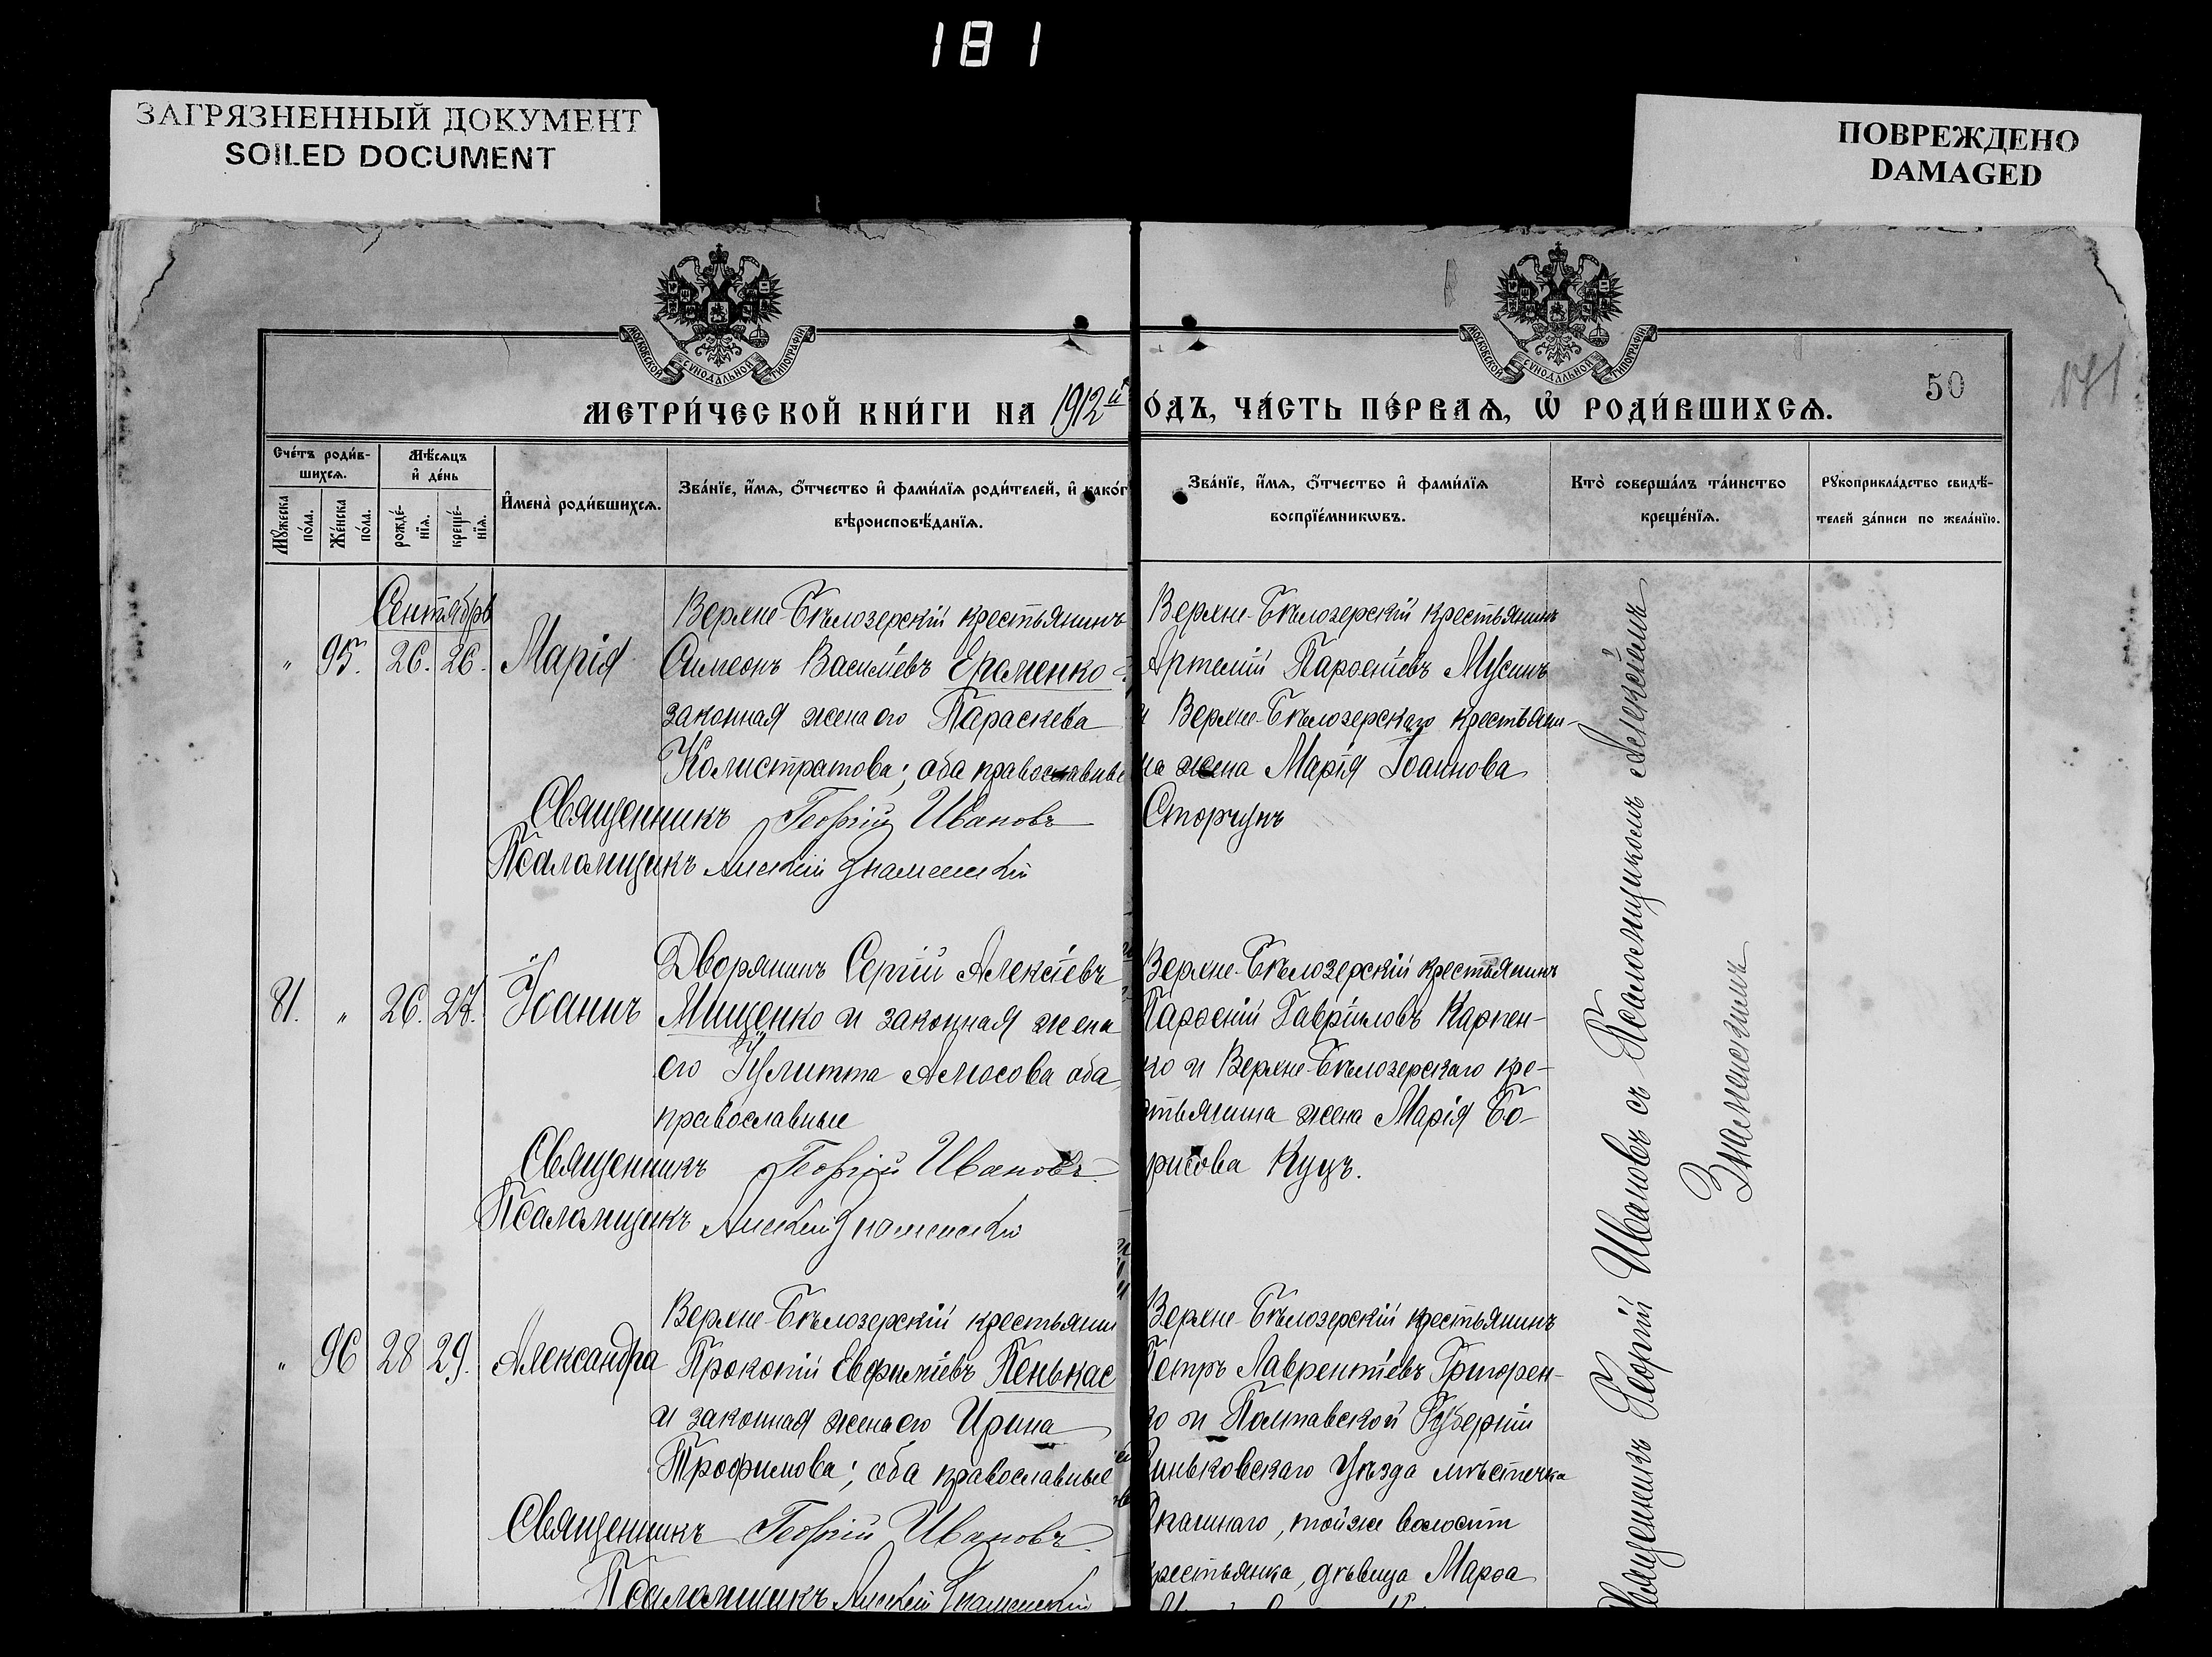 181
ЗАГРЯЗНЕННЫЙ ДОКУМЕНТ
SOILED DOCUMENT
ПОВРЕЖДЕНО
DAMAGED
МОСКОВСКОЙ СѴНОДАЛЬНОЙ ТИПОГРАФІИ
МОСКОВСКОЙ СѴНОДАЛЬНОЙ ТИПОГРАФІИ
50
181
МЕТРИ́ЧЕСКОЙ КНИ́ГИ НА 1912й
ОДЪ, ЧА́СТЬ ПЕ́РВАѦ, Ѡ҆ РОДИ́ВШИХСѦ.
Сче́тъ роди́в-
шихсѧ.
Мѣ́сѧцъ
и҆ де́нь
Мꙋ́жеска
по́ла.
Же́нска
по́ла.
рожде́-
нїѧ.
креще́-
нїѧ.
И҆мена̀ роди́вшихсѧ.
Зва́нїе, и҆́мѧ, ѻ҆́тчество и҆ фами́лїѧ роди́телей, и҆ како́г
вѣроисповѣ́данїѧ.
Зва́нїе, и҆́мѧ, ѻ҆́тчество и҆ фами́лїѧ
воспрїе́мникѡвъ.
Кто̀ соверша́лъ та́инство
креще́нїѧ.
Рꙋкоприкла́дство свидѣ́-
телей за́писи по жела́нїю.
Сентябрь
" 95. 26. 26. Марія
Верхне-Бѣлозерскій крестьянинъ
Симеонъ Василіевъ Ерёменко
законная жена его Параскева
Калистратова; оба православные
Священникъ Георгій Ивановъ
Псаломщикъ Алексій Знаменскій
Верхне-Бѣлозерскій крестьянинъ
Артемій Парѳеніевъ Мусинъ
и Верхне-Бѣлозерскаго крестьяни-
на жена Марія Іоаннова
Сторчунъ
81. " 26. 27. Іоаннъ
Дворянинъ Сергій Алексіевъ
Мищенко и законная жена
его Іулитта Амосова оба
православные
Священникъ Георгій Ивановъ
Псаломщикъ Алексій Знаменскій
Верхне-Бѣлозерскій крестьянинъ
Парѳеній Гавріиловъ Карпен-
ко и Верхне-Бѣлозерскаго кре-
стьянина жена Марія Бо-
рисова Куцъ.
" 96 28 29. Александра
Верхне-Бѣлозерскій крестьянин
Прокопій Евфиміевъ Пенькас
и законная жена его Ирина
Трофимова; оба православные
Священникъ Георгій Ивановъ
Псаломщикъ Алексій Знаменскій
Верхне-Бѣлозерскій крестьянинъ
Петръ Лаврентіевъ Григорен-
ко и Полтавской Губерніи
Зиньковскаго Уѣзда мѣстечка
тойже волости
крестьянка, дѣвица Марѳа
Священникъ Георгій Ивановъ съ Псаломщикомъ Алексіемъ
Знаменскимъ